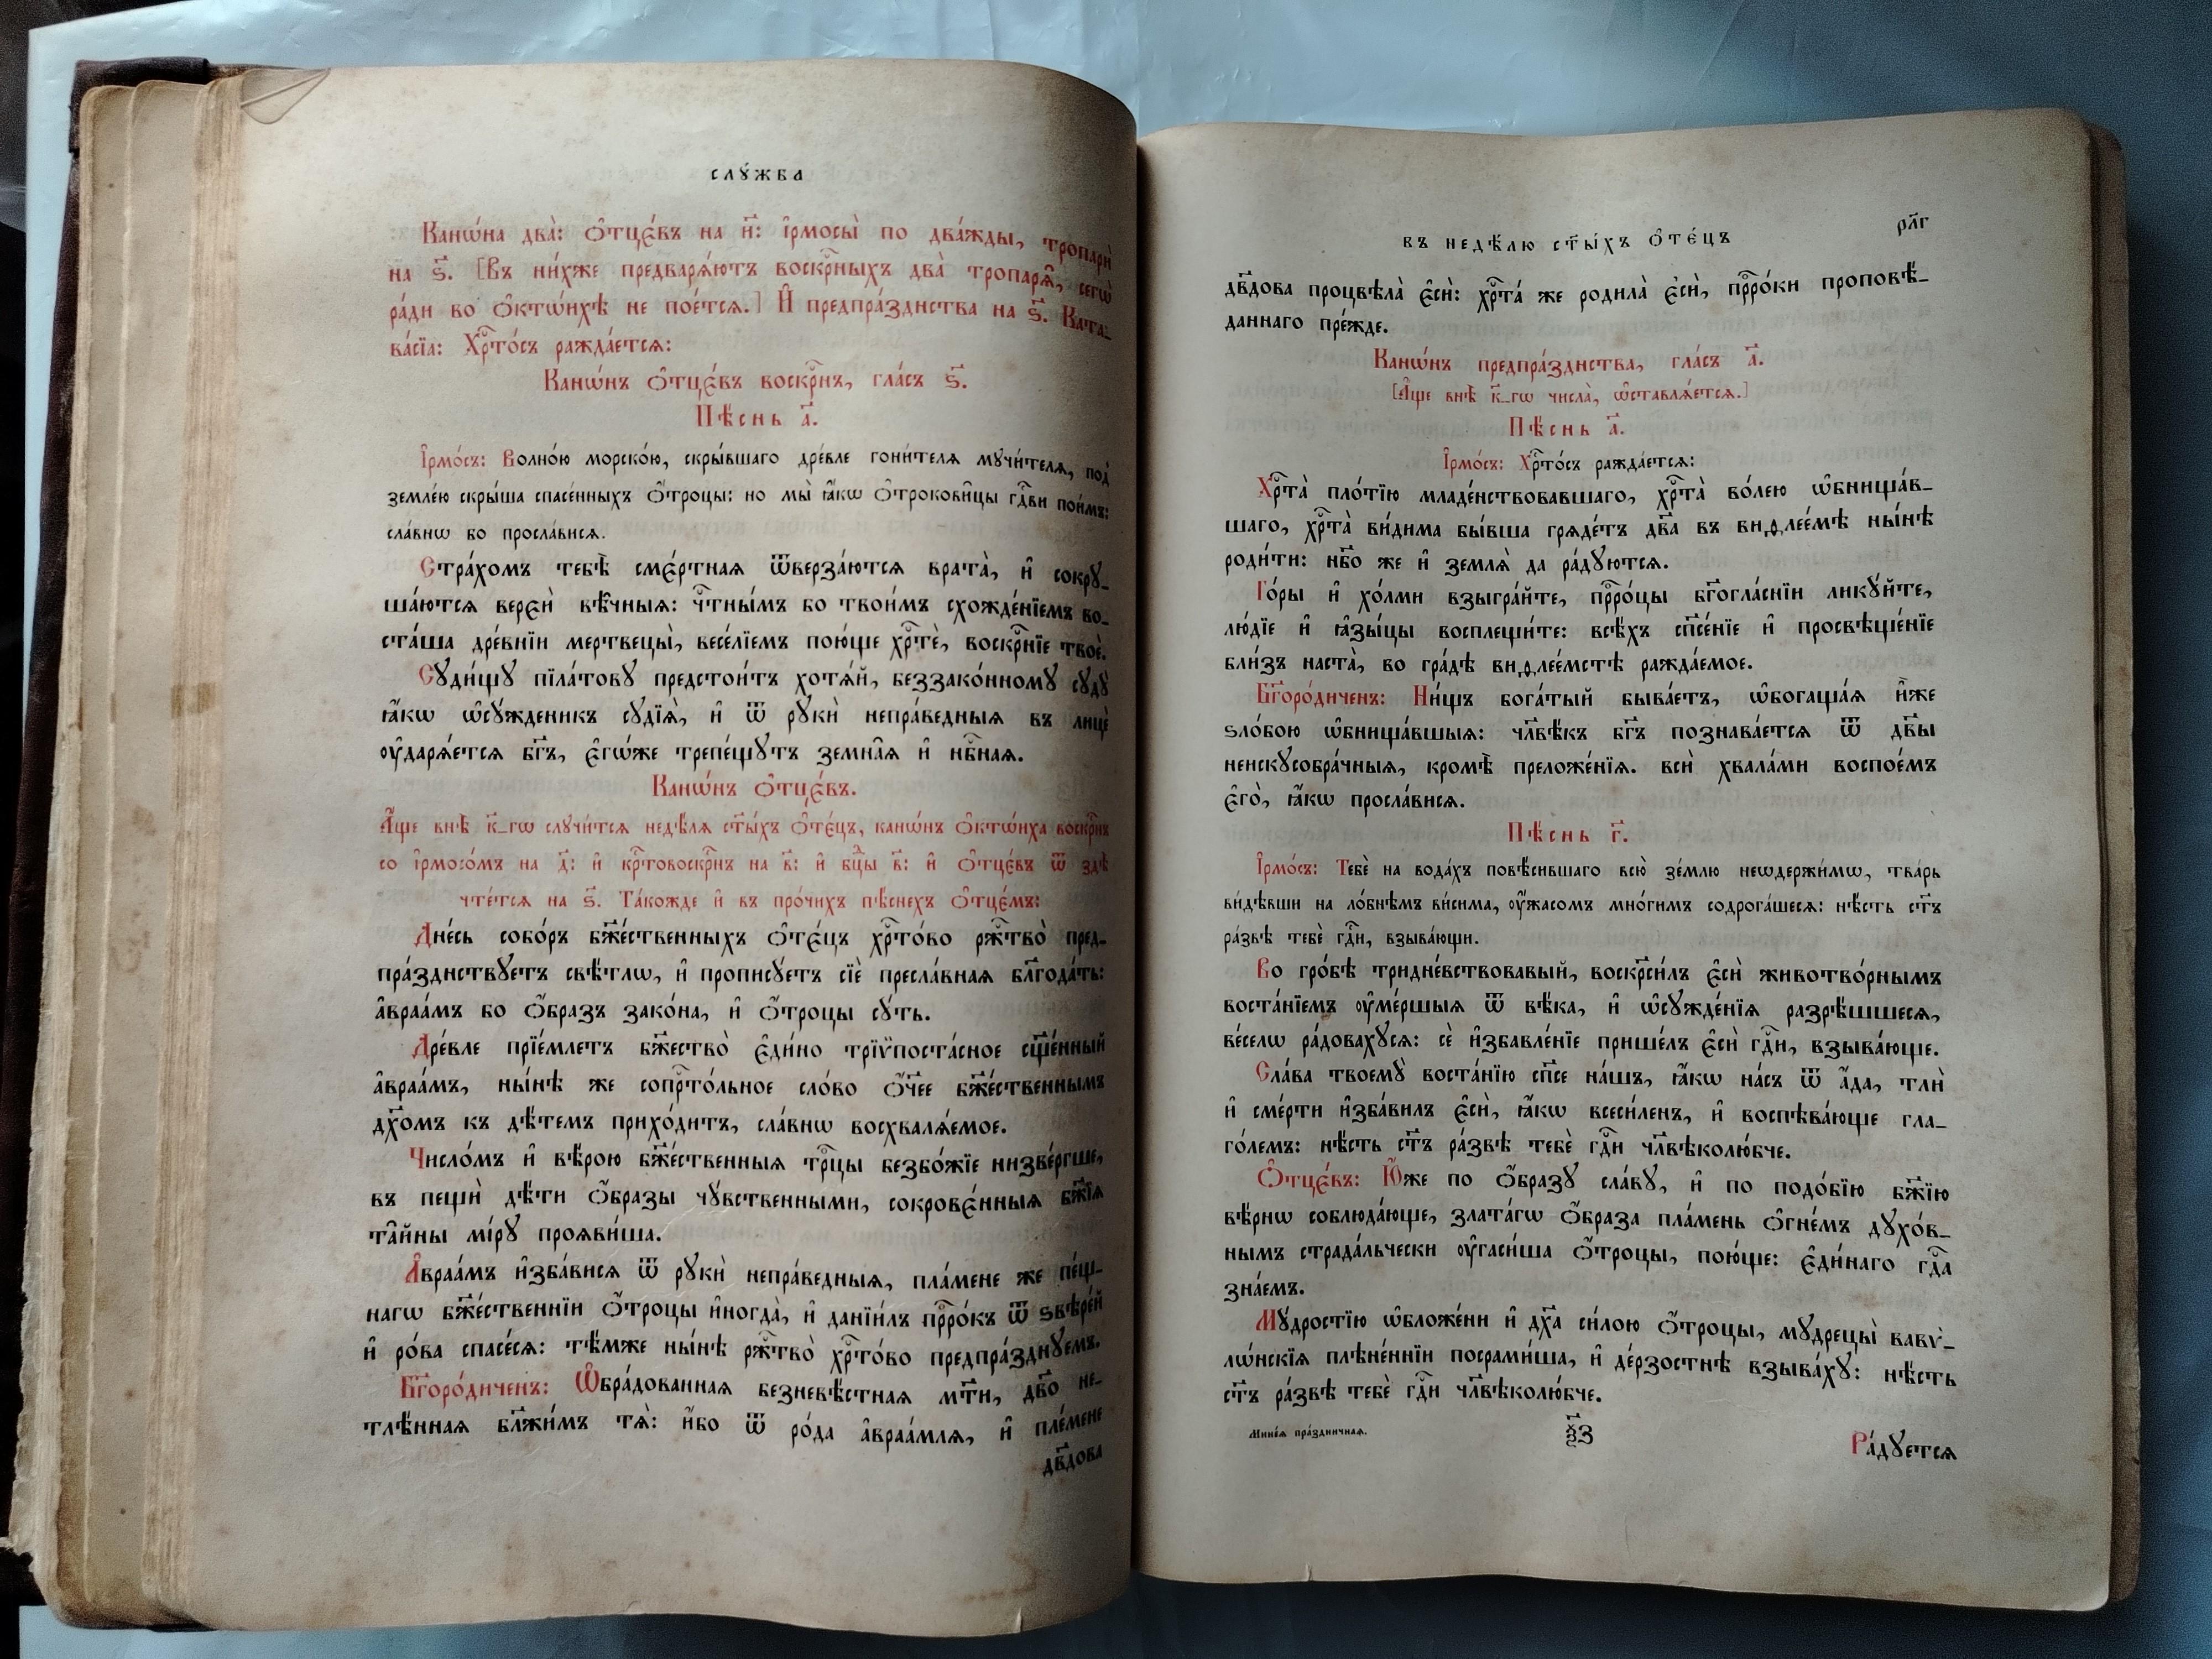 слꙋ́жба
Канѡ́на два̀: ѻ҆тцє́въ на и҃: і҆рмосы̀ по два́жды, тропари̑
на ѕ҃. [Въ ни́хже предварѧ́ютъ воскрⷭ҇ныхъ два̀ тропарѧ̑, сегѡ̀
ра́ди во ѻ҆ктѡ́ихѣ не пое́тсѧ.] И҆ предпра́зднства на ѕ҃. Ката-
ва́сїа: Хрⷭ҇то́съ ражда́етсѧ:
Канѡ́нъ ѻ҆тцє́въ воскрⷭ҇нъ, гла́съ ѕ҃.
Пѣ́снь а҃.
І҆рмо́съ: Волно́ю морско́ю, скры́вшаго дре́вле гони́телѧ мꙋчи́телѧ, под̾
земле́ю скры́ша спасе́нныхъ ѻ҆́троцы: но мы̀ ꙗ҆́кѡ ѻ҆трокови̑цы гдⷭ҇ви пои́мъ:
сла́внѡ бо просла́висѧ.
Стра́хомъ тебѣ̀ смє́ртнаѧ ѿверза́ютсѧ врата̀, и҆ сокрꙋ-
ша́ютсѧ верєѝ вѣ̑чныѧ: чⷭ҇тны́мъ бо твои́мъ схожде́нїемъ во-
ста́ша дре́внїи мертвецы̀, весе́лїемъ пою́ще хрⷭ҇тѐ, воскрⷭ҇нїе твоѐ.
Сꙋди́щꙋ пїла́товꙋ предстои́тъ хотѧ́й, беззако́нномꙋ сꙋдꙋ̀
ꙗ҆́кѡ ѡ҆сꙋ́жденикъ сꙋдїѧ̀, и҆ ѿ рꙋкѝ непра́ведныѧ въ лицѐ
ᲂу҆дарѧ́етсѧ бг҃ъ, є҆гѡ́же трепе́щꙋтъ земна̑ѧ и҆ нбⷭ҇наѧ.
Канѡ́нъ ѻ҆тцє́въ.
А҆́ще внѣ̀ к҃-гѡ слꙋчи́тсѧ недѣ́лѧ ст҃ы́хъ ѻ҆тє́цъ, канѡ́нъ ѻ҆ктѡ́иха воскрⷭ҇нъ
со і҆рмосо́мъ на д҃: и҆ крⷭ҇товоскрⷭ҇нъ на в҃: и҆ бцⷣы в҃: и҆ ѻ҆тцє́въ ѿ здѣ̀
чте́тсѧ на ѕ҃. Та́кожде и҆ въ про́чихъ пѣ́снехъ ѻ҆тцє́мъ:
Дне́сь собо́ръ бж҃е́ственныхъ ѻ҆тє́цъ хрⷭ҇то́во ржⷭ҇тво̀ пред-
пра́зднствꙋетъ свѣ́тлѡ, и҆ прописꙋетъ сїѐ пресла́внаѧ блгⷣода́ть:
а҆враа́мъ бо ѻ҆́бразъ зако́на, и҆ ѻ҆́троцы сꙋ́ть.
Дре́вле прїе́млетъ бж҃ество̀ є҆ди́но трїѵ̈поста́сное сщ҃е́нный
а҆враа́мъ, ны́нѣ же сопрⷭ҇то́льное сло́во ѻ҆́ч҃ее бж҃е́ственнымъ
дх҃омъ къ дѣ́темъ прихо́дитъ, сла́внѡ восхвалѧ́емое.
Число́мъ и҆ вѣ́рою бж҃е́ственныѧ трⷪ҇цы безбо́жїе низве́ргше,
въ пещѝ дѣ́ти ѻ҆́бразы чꙋ́вственными, сокровє́нныѧ бж҃їѧ
та̑йны мі́рꙋ проѧви́ша.
А҆враа́мъ и҆зба́висѧ ѿ рꙋкѝ непра́ведныѧ, пла́мене же пе́щ-
нагѡ бж҃е́ственнїи ѻ҆́троцы и҆ногда̀, и҆ данїи́лъ прⷪ҇ро́къ ѿ ѕвѣре́й
и҆ ро́ва спасе́сѧ: тѣ́мже ны́нѣ ржⷭ҇тво̀ хрⷭ҇то́во предпра́зднꙋемъ.
Бг҃оро́диченъ: Ѡ҆бра́дованнаѧ безневѣ́стнаѧ мт҃и, дв҃о не-
тлѣ́ннаѧ бл҃жи́мъ тѧ̀: и҆́бо ѿ ро́да а҆враа́млѧ, и҆ пле́мене
дв҃дова
въ недѣ́лю ст҃ы́хъ ѻ҆тє́цъ
рл҃г
дв҃дова процвѣла̀ є҆сѝ: хрⷭ҇та́ же родила̀ є҆сѝ, прⷪ҇ро́ки проповѣ́-
даннаго пре́жде.
Канѡ́нъ предпра́зднства, гла́съ а҃.
[А҆́ще внѣ̀ к҃-гѡ числа̀, ѡ҆ставлѧ́етсѧ.]
Пѣ́снь а҃.
І҆рмо́съ: Хрⷭ҇то́съ ражда́етсѧ:
Хрⷭ҇та̀ пло́тїю младе́нствовавшаго, хрⷭ҇та̀ во́лею ѡ҆бнища́в-
шаго, хрⷭ҇та̀ ви́дима бы́вша грѧде́тъ дв҃а въ виѳлее́мѣ ны́нѣ
роди́ти: нб҃о же и҆ землѧ̀ да ра́дꙋютсѧ.
Го́ры и҆ хо́лми взыгра́йте, прⷪ҇ро́цы бг҃огла́снїи ликꙋ́йте,
лю́дїе и҆ ꙗ҆зы́цы восплещи́те: всѣ́хъ сп҃се́нїе и҆ просвѣще́нїе
бли́зъ наста̀, во гра́дѣ виѳлее́мстѣ ражда́емое.
Бг҃оро́диченъ: Ни́щъ бога́тый быва́етъ, ѡ҆богаща́ѧ и҆̀же
ѕло́бою ѡ҆бнища́вшыѧ: чл҃вѣ́къ бг҃ъ познава́етсѧ ѿ дв҃ы
неискꙋсобра́чныѧ, кромѣ̀ преложе́нїѧ. всѝ хвала́ми воспое́мъ
є҆го̀, ꙗ҆́кѡ просла́висѧ.
Пѣ́снь г҃.
І҆рмо́съ: Тебѐ на вода́хъ повѣ́сившаго всю̀ зе́млю неѡдержи́мѡ, тва́рь
ви́дѣвши на ло́бнѣмъ ви́сима, ᲂу҆́жасомъ мно́гимъ содрога́шесѧ: нѣ́сть ст҃ъ
ра́звѣ тебѐ гдⷭ҇и, взыва́ющи.
Во гро́бѣ тридне́вствовавый, воскр҃си́лъ є҆сѝ животво́рнымъ
воста́нїемъ ᲂу҆ме́ршыѧ ѿ вѣ́ка, и҆ ѡ҆сꙋжде́нїѧ разрѣ́шшесѧ,
ве́селѡ ра́довахꙋсѧ: сѐ и҆збавле́нїе прише́лъ є҆сѝ гдⷭ҇и, взыва́юще.
Сла́ва твоемꙋ̀ воста́нїю сп҃се на́шъ, ꙗ҆́кѡ на́съ ѿ а҆́да, тлѝ
и҆ сме́рти и҆зба́вилъ є҆сѝ, ꙗ҆́кѡ всеси́ленъ, и҆ воспѣва́юще гла-
го́лемъ: нѣ́сть ст҃ъ ра́звѣ тебѐ гдⷭ҇и чл҃вѣколю́бче.
Ѻ҆тцє́въ: Ю҆́же по ѻ҆́бразꙋ сла́вꙋ, и҆ по подо́бїю бж҃їю
вѣ́рнѡ соблюда́юще, злата́гѡ ѻ҆́браза пла́мень ѻ҆гне́мъ дꙋхо́в-
нымъ страда́льчески ᲂу҆гаси́ша ѻ҆́троцы, пою́ще: є҆ди́наго гдⷭ҇а
зна́емъ.
Мꙋ́дростїю ѡ҆бложе́ни и҆ дх҃а си́лою ѻ҆́троцы, мꙋдрецы̀ вавѷ-
лѡ́нскїѧ плѣне́ннїи посрами́ша, и҆ де́рзостнѣ взыва́хꙋ: нѣ́сть
ст҃ъ ра́звѣ тебѐ гдⷭ҇и чл҃вѣколю́бче.
Мине́ѧ пра́здничнаѧ.
Ра́дꙋетсѧ